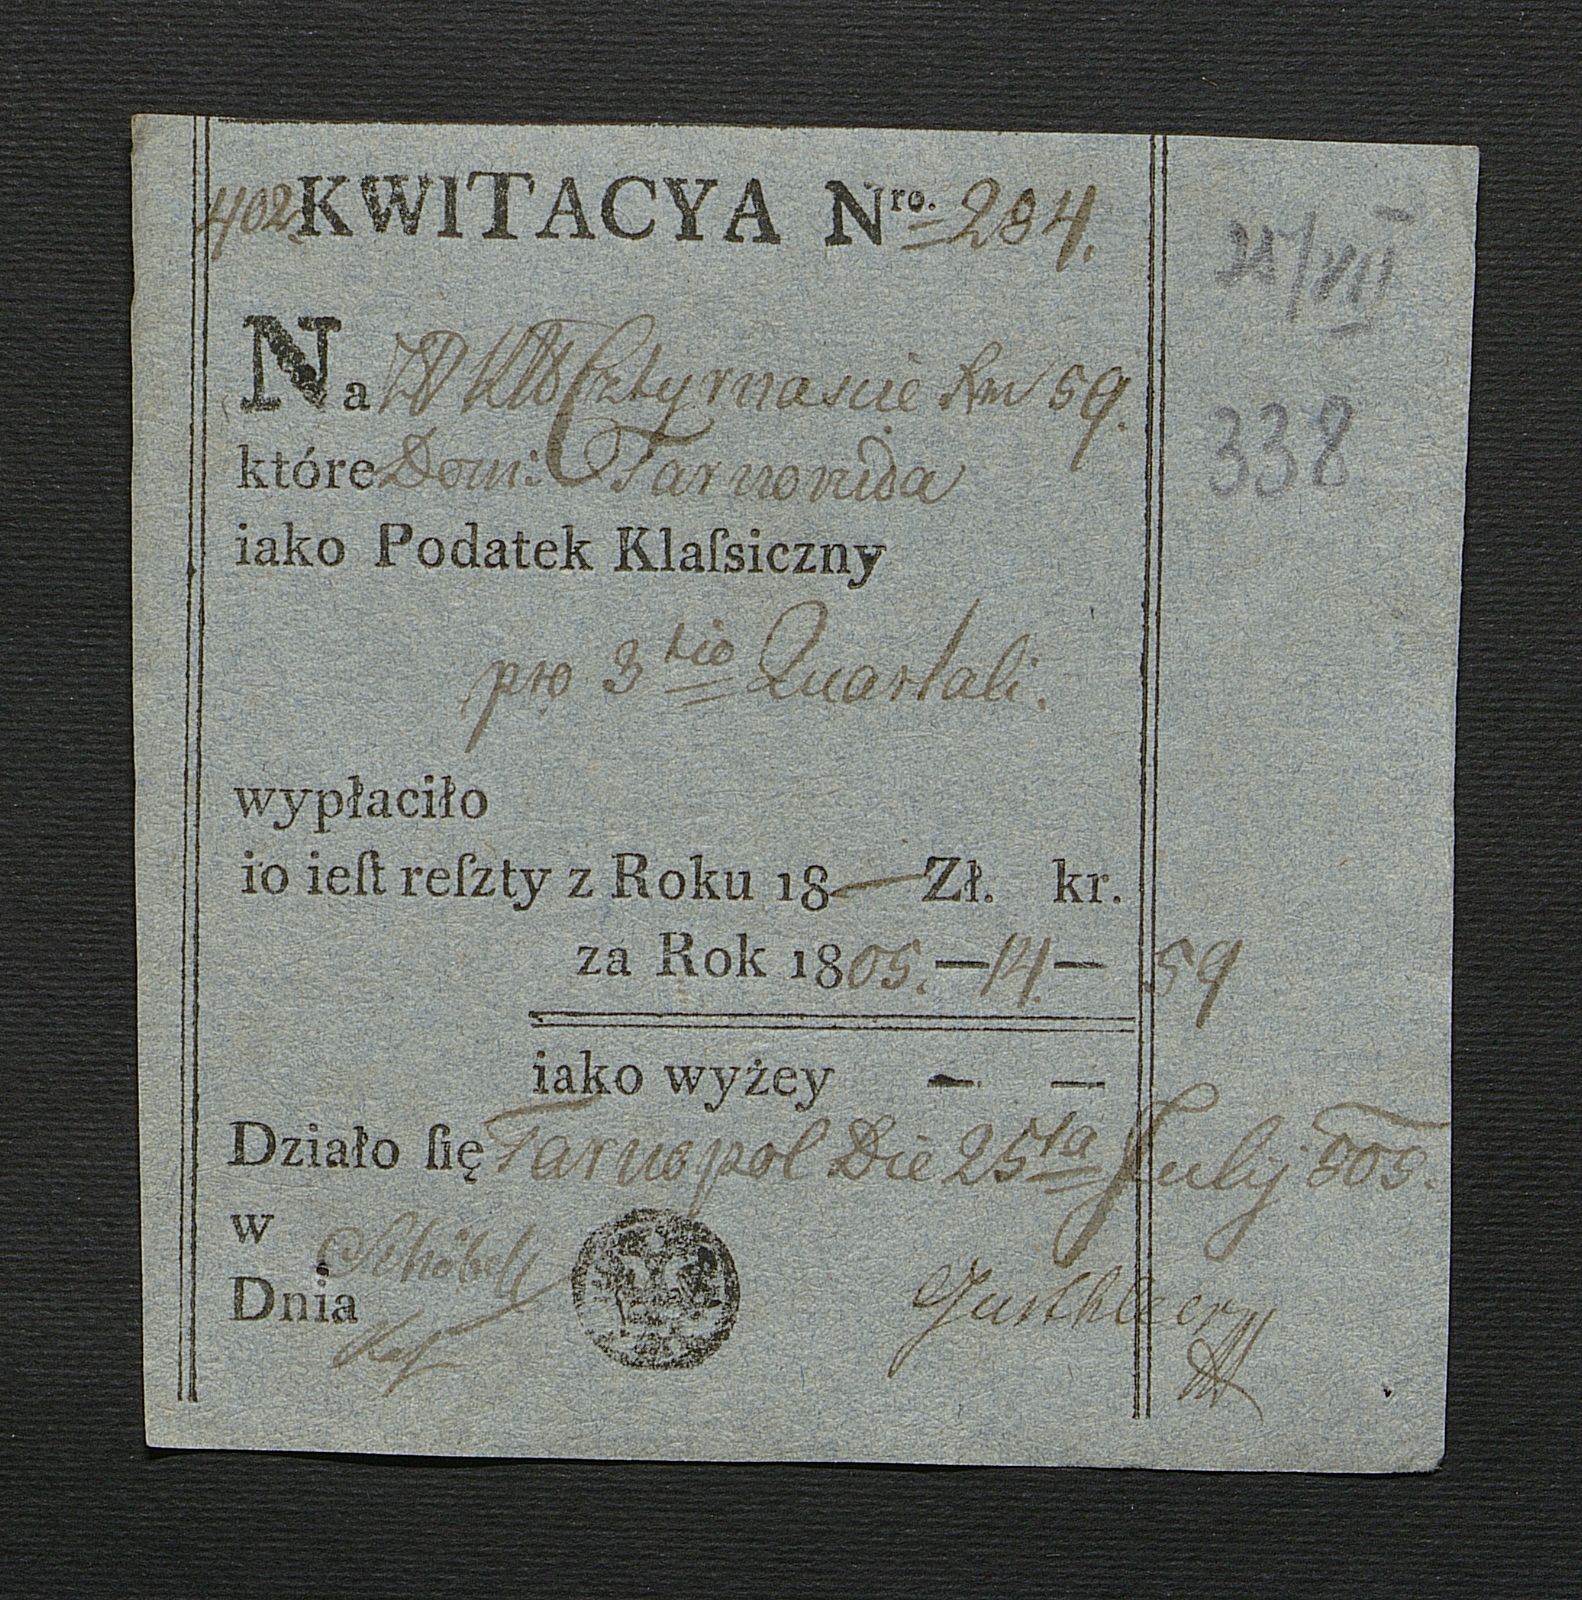 402 KWITACYA Nro. 294.
25/VII
Na Cztyrnascie Xm 59.
338
które Dom: Tarnoruda
iako Podatek Klaſsiczny
pro 3tio Quartali.
wypłaciło
io ieſt reſzty z Roku 18— Zł. kr.
za Rok 1805. — 14. — 59
iako wyżey — —
Działo ſię Tarnopol Die 25ta July 805.
w
Schöbell
Dnia